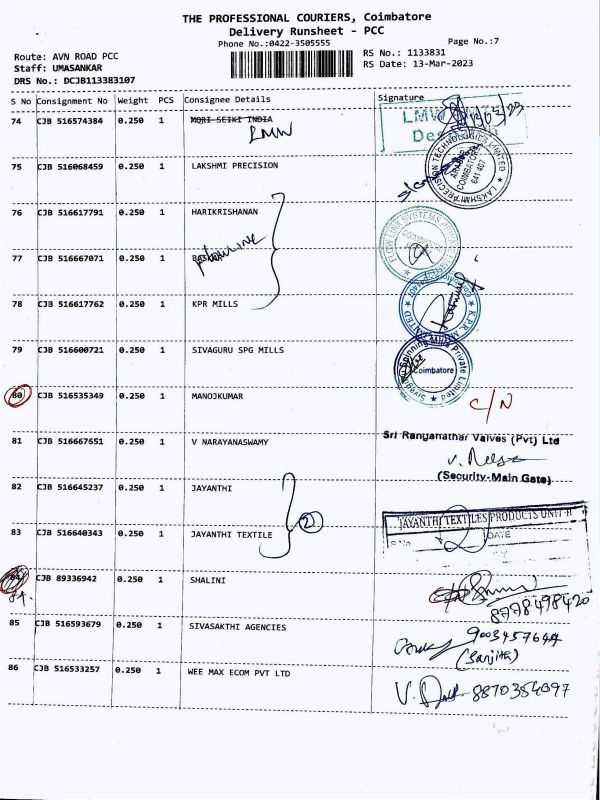 THE PROFESSIONAL COURIERS, Coimbatore
Delivery Runsheet - PCC
Phone No.:0422-3505555
Page No.:7
Route: AVN ROAD PCC
RS No.: 1133831
Staff: UMASANKAR
RS Date: 13-Mar-2023
DRS No.: DCJB113383107
S No Consignment No Weight PCS Consignee Details Signature
74 CJB 516574384 0.250 1 MORI SEIKI INDIA
LMW
LMW
75 CJB 516068459 0.250 1 LAKSHMI PRECISION
LAKSHMI PRECISION TECHNOLOGIES LIMITED
COIMBATORE
641 407
76 CJB 516617791 0.250 1 HARIKRISHANAN
77 CJB 516667071 0.250 1
78 CJB 516617762 0.250 1 KPR MILLS
79 CJB 516600721 0.250 1 SIVAGURU SPG MILLS
Spinning Mills Private Limited
Coimbatore
80 CJB 516535349 0.250 1 MANOJKUMAR
C/N
81 CJB 516667651 0.250 1 V NARAYANASWAMY
Sri Ranganathar Valves (Pvt) Ltd
(Security-Main Gate)
82 CJB 516645237 0.250 1 JAYANTHI
2
83 CJB 516640343 0.250 1 JAYANTHI TEXTILE
JAYANTHI TEXTILES PRODUCTS UNIT-II
DATE
84 CJB 89336942 0.250 1 SHALINI
84.
8778498420
85 CJB 516593679 0.250 1 SIVASAKTHI AGENCIES
9003457644
(Sanjith)
86 CJB 516533257 0.250 1 WEE MAX ECOM PVT LTD
8870354097